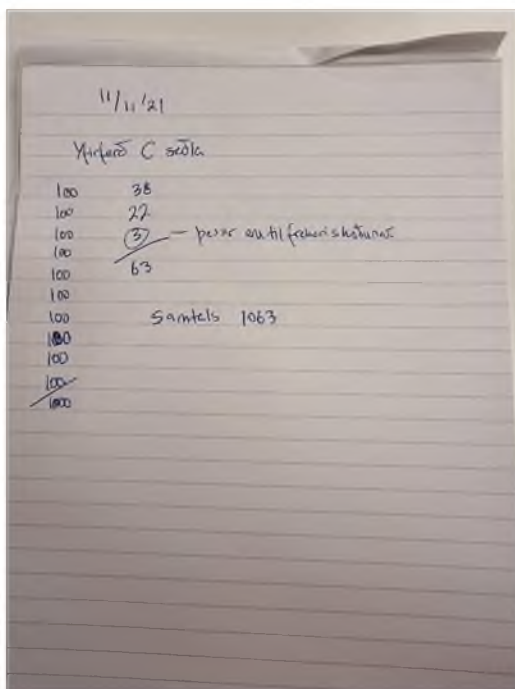 11/11 '21
Yfirferð C seðla
100 38
100 22
100 (3) — þessir eru til frekari skoðunar.
100
100 63
100
100 Samtals 1063
100
100
100
1000